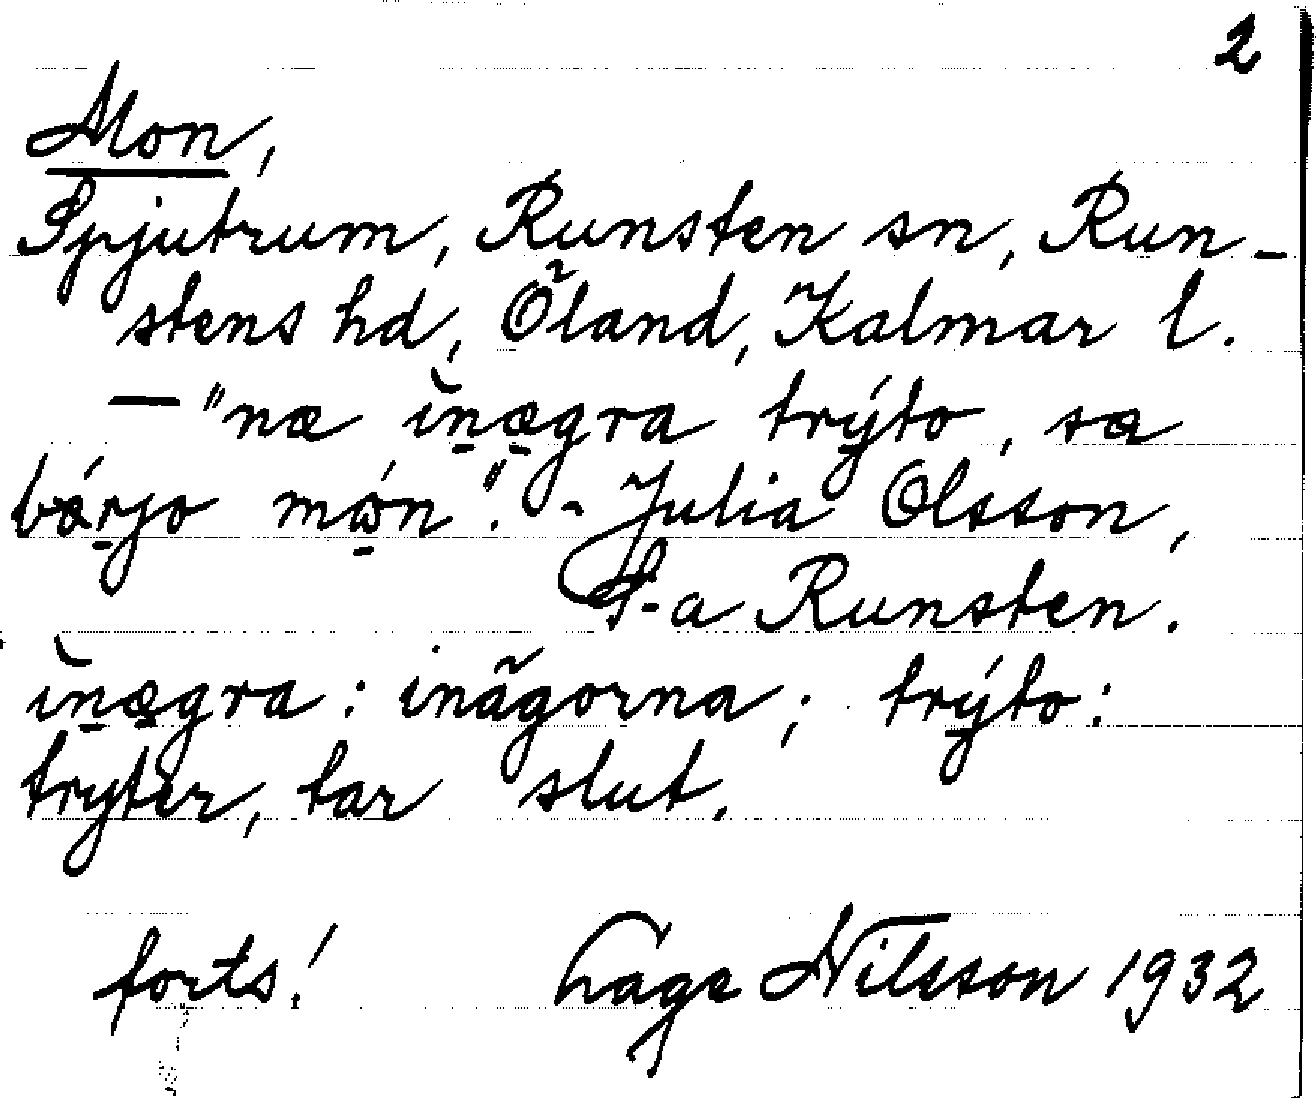 2
Mon,
Spjutrum, Runsten sn, Run-
stens hd, Öland, Kalmar l.
— "næ ìn̠æ̠gra trý̠to, sæ
bá̠rjo mọ́n". - Julia Olsson,
S-a Runsten.
ìn̠æ̠gra : inägorna ; trý̠to :
tryter, tar slut.
forts! Lage Nilsson 1932